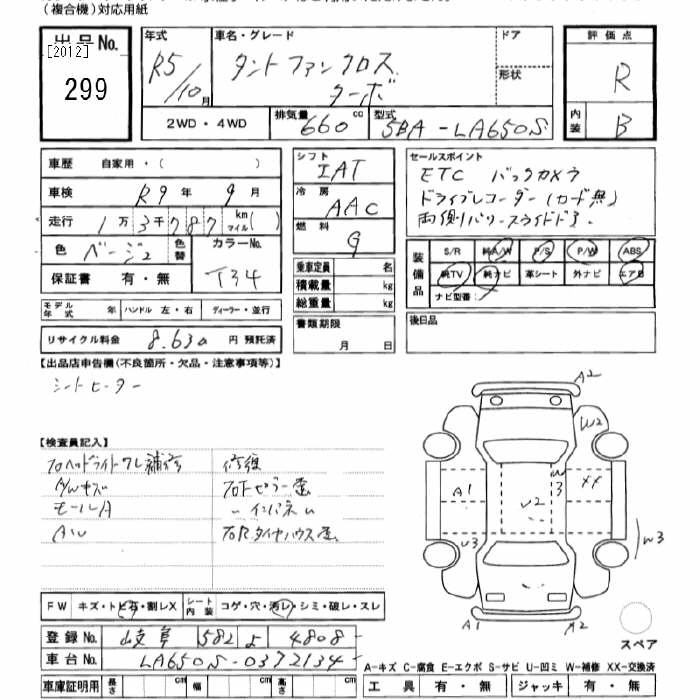 (複合機)対応用紙
出品No. [2012] 299
年式 R5/10月
車名・グレード タントファンクロス ターボ
ドア 形状
評価点 R
内装 B
2WD・4WD
排気量 660 cc
型式 5BA-LA650S
車歴 自家用・( )
車検 R9年 9月
走行 1万3千787 km マイル( )
色 ベージュ 色替 カラーNo. T34
保証書 有・無
シフト IAT
冷房 AAC
燃料 G
乗車定員 名
積載量 kg
総重量 kg
書類期限 月 日
セールスポイント
ETC バックカメラ
ドライブレコーダー(カード無)
両側パワースライドドア.
装備品 S/R 純A/W P/S P/W ABS
純TV 純ナビ 革シート 外ナビ エアB
ナビ型番
後日品
モデル年式 ハンドル 左・右 ディーラー・並行
リサイクル料金 8.630 円 預託済
【出品店申告欄(不良箇所・欠品・注意事項等)】
シートヒーター
【検査員記入】
フロヘッドライトワレ補修 修復
A/Wキズ
モールA
AW
FW キズ・トビ石・割レX シート内装 コゲ・穴・汚レ・シミ・破レ・スレ
登録No. 岐阜 582 よ 4808
車台No. LA650S-0372134
車庫証明用 長さ cm 幅 cm 高さ cm
A2
W2
A1
U2
W3
XX
U3
W3
A1
A2
スペア
A-キズ C-腐食 E-エクボ S-サビ U-凹ミ W-補修 XX-交換済
工具 有・無 ジャッキ 有・無